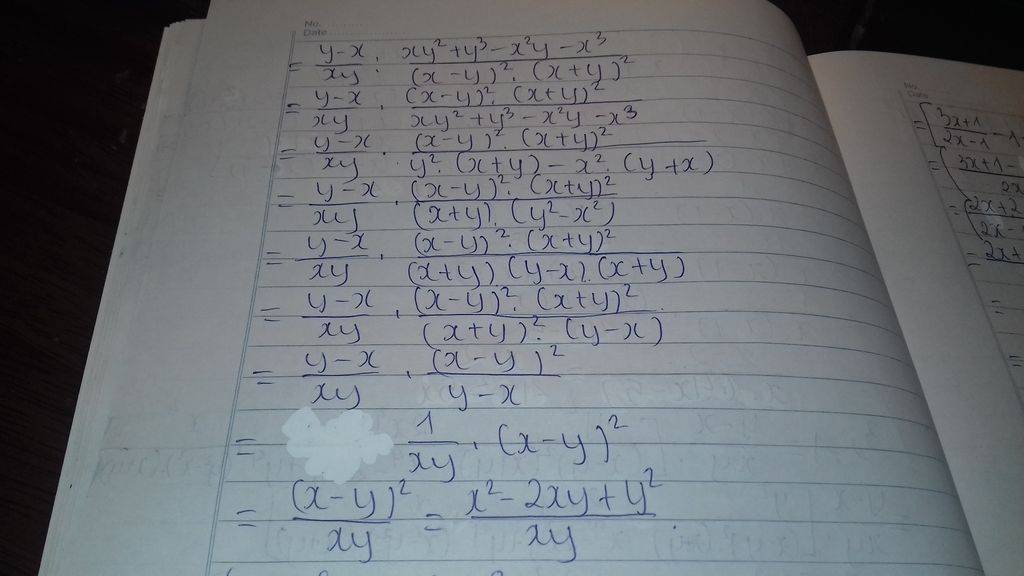 No.
Date
= y-x/xy : xy²+y³-x²y-x³/(x-y)².(x+y)²
= y-x/xy . (x-y)².(x+y)²/xy²+y³-x²y-x³
= y-x/xy . (x-y)².(x+y)²/y².(x+y)-x².(y+x)
= y-x/xy . (x-y)².(x+y)²/(x+y).(y²-x²)
= y-x/xy . (x-y)².(x+y)²/(x+y)(y-x).(x+y)
= y-x/xy . (x-y)².(x+y)²/(x+y)².(y-x)
= y-x/xy . (x-y)²/y-x
= 1/xy . (x-y)²
= (x-y)²/xy = x²-2xy+y²/xy .
No.
Date
= [3x+1/2x-1 -1
= (3x+1-/2x
= (2x+2/2x-
= 2x+
=
=